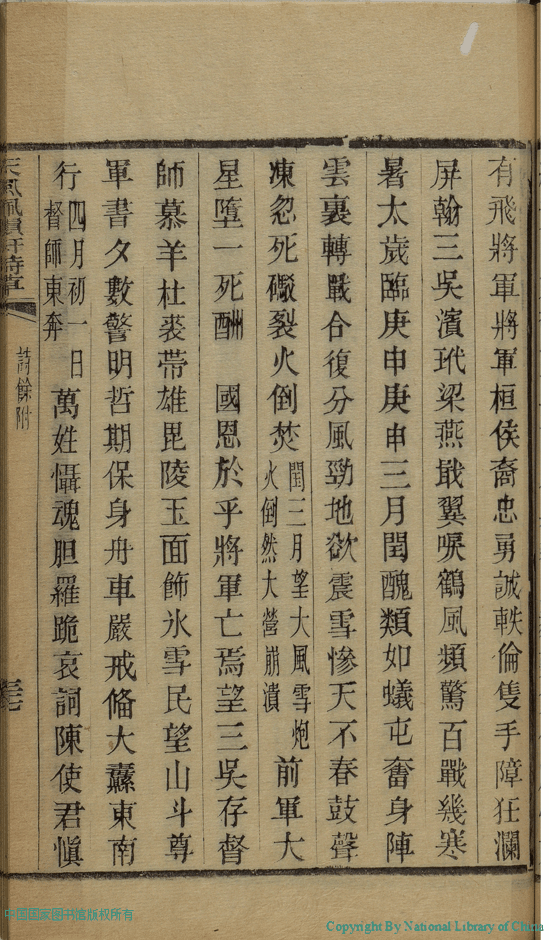 有飛將軍將軍桓侯裔忠勇誠軼倫隻手障狂瀾
屏翰三吳濱玳梁燕戢翼唳鶴風頻驚百戰幾寒
暑太歲臨庚申庚申三月閏醜類如蟻屯奮身陣
雲裏轉戰合復分風勁地欲震雪慘天不春鼓聲
凍忽死礮裂火倒焚閏三月望大風雪炮火倒然大營崩潰前軍大
星墮一死酬 國恩於乎將軍亡焉望三吳存督
師慕羊杜裘帶雄毘陵玉面飾氷雪民望山斗尊
軍書夕數警明哲期保身舟車嚴戒偹大纛東南
行四月初一日督師東奔萬姓懾魂胆羅跪哀詞陳使君愼
詩餘附
中国国家图书馆版权所有
Copyright By National Library of China